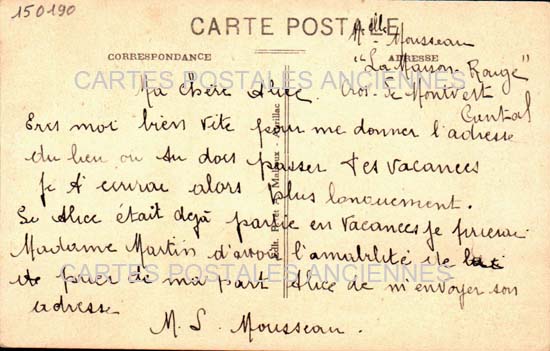 150190
CARTE POSTALE
Melle Mousseau
CORRESPONDANCE
ADRESSE
"La Maison Rouge"
CARTES POSTALES ANCIENNES
Ma Chère Alice.
Cros de Montvert
Cantal
Ecris moi bien vite pour me donner l'adresse
du lieu ou tu dois passer tes vacances
Je t'écrirai alors plus longuement.
Si Alice était déjà partie en vacances je prierai
Madame Martin d'avoir l'amabilité de
CARTES POSTALES ANCIENNES
prier de ma part Alice de m'envoyer son
adresse
M. L. Mousseau.
Edit. Malroux - Aurillac